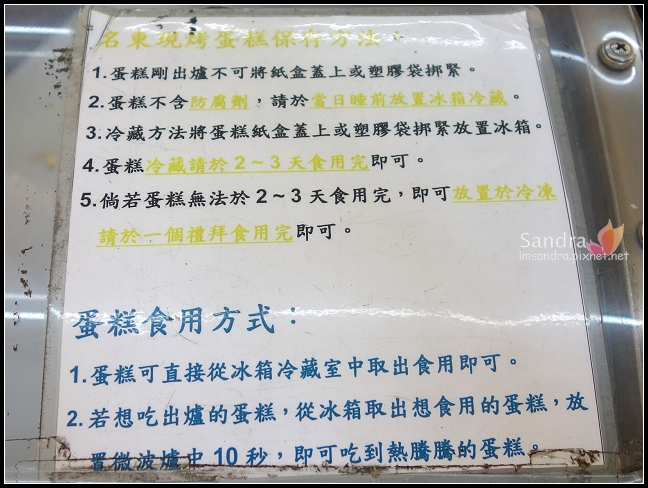 名東現烤蛋糕保存方法：
1.蛋糕剛出爐不可將紙盒蓋上或塑膠袋掷緊。
2.蛋糕不含防腐劑，請於當日睡前放置冰箱冷藏。
3.冷藏方法將蛋糕紙盒蓋上或塑膠袋掷緊放置冰箱。
4.蛋糕冷藏請於2～3天食用完即可。
5.倘若蛋糕無法於2～3天食用完，即可放置於冷凍
請於一個禮拜食用完即可。
Sandra
imsandra.pixnet.net
蛋糕食用方式：
1.蛋糕可直接從冰箱冷藏室中取出食用即可。
2.若想吃出爐的蛋糕，從冰箱取出想食用的蛋糕，放
置微波爐中10秒，即可吃到熱騰騰的蛋糕。